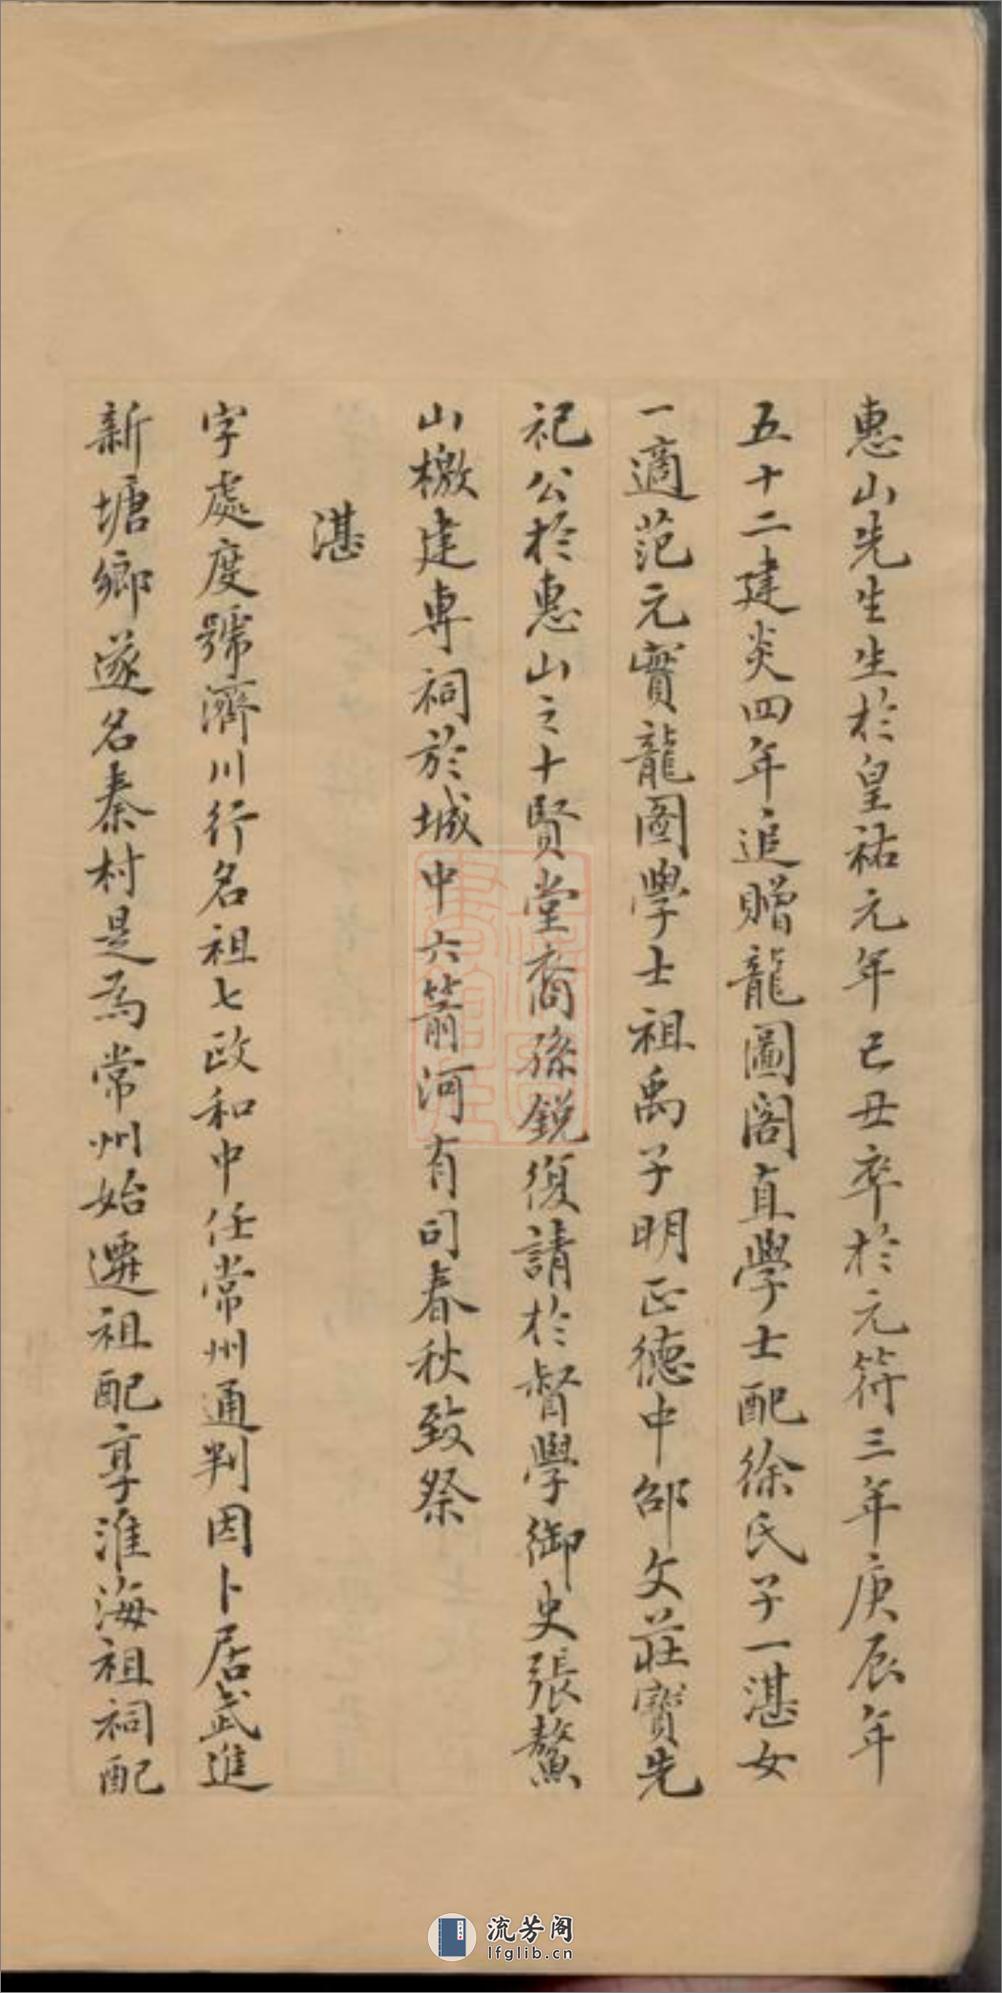 惠山先生生於皇祐元年己丑卒於元符三年庚辰年
五十二建炎四年追贈龍圖閣直學士配徐氏子一湛女
一適范元實龍圖學士祖禹子明正德中邵文莊寶先
祀公於惠山之十賢堂裔孫銳復請於督學御史張鰲
山檄建專祠於城中六箭河有司春秋致祭
湛
字處度號濟川行名祖七政和中任常州通判因卜居武進
新塘鄉遂名秦村是為常州始遷祖配享淮海祖祠配
流芳阁
lfglib.cn